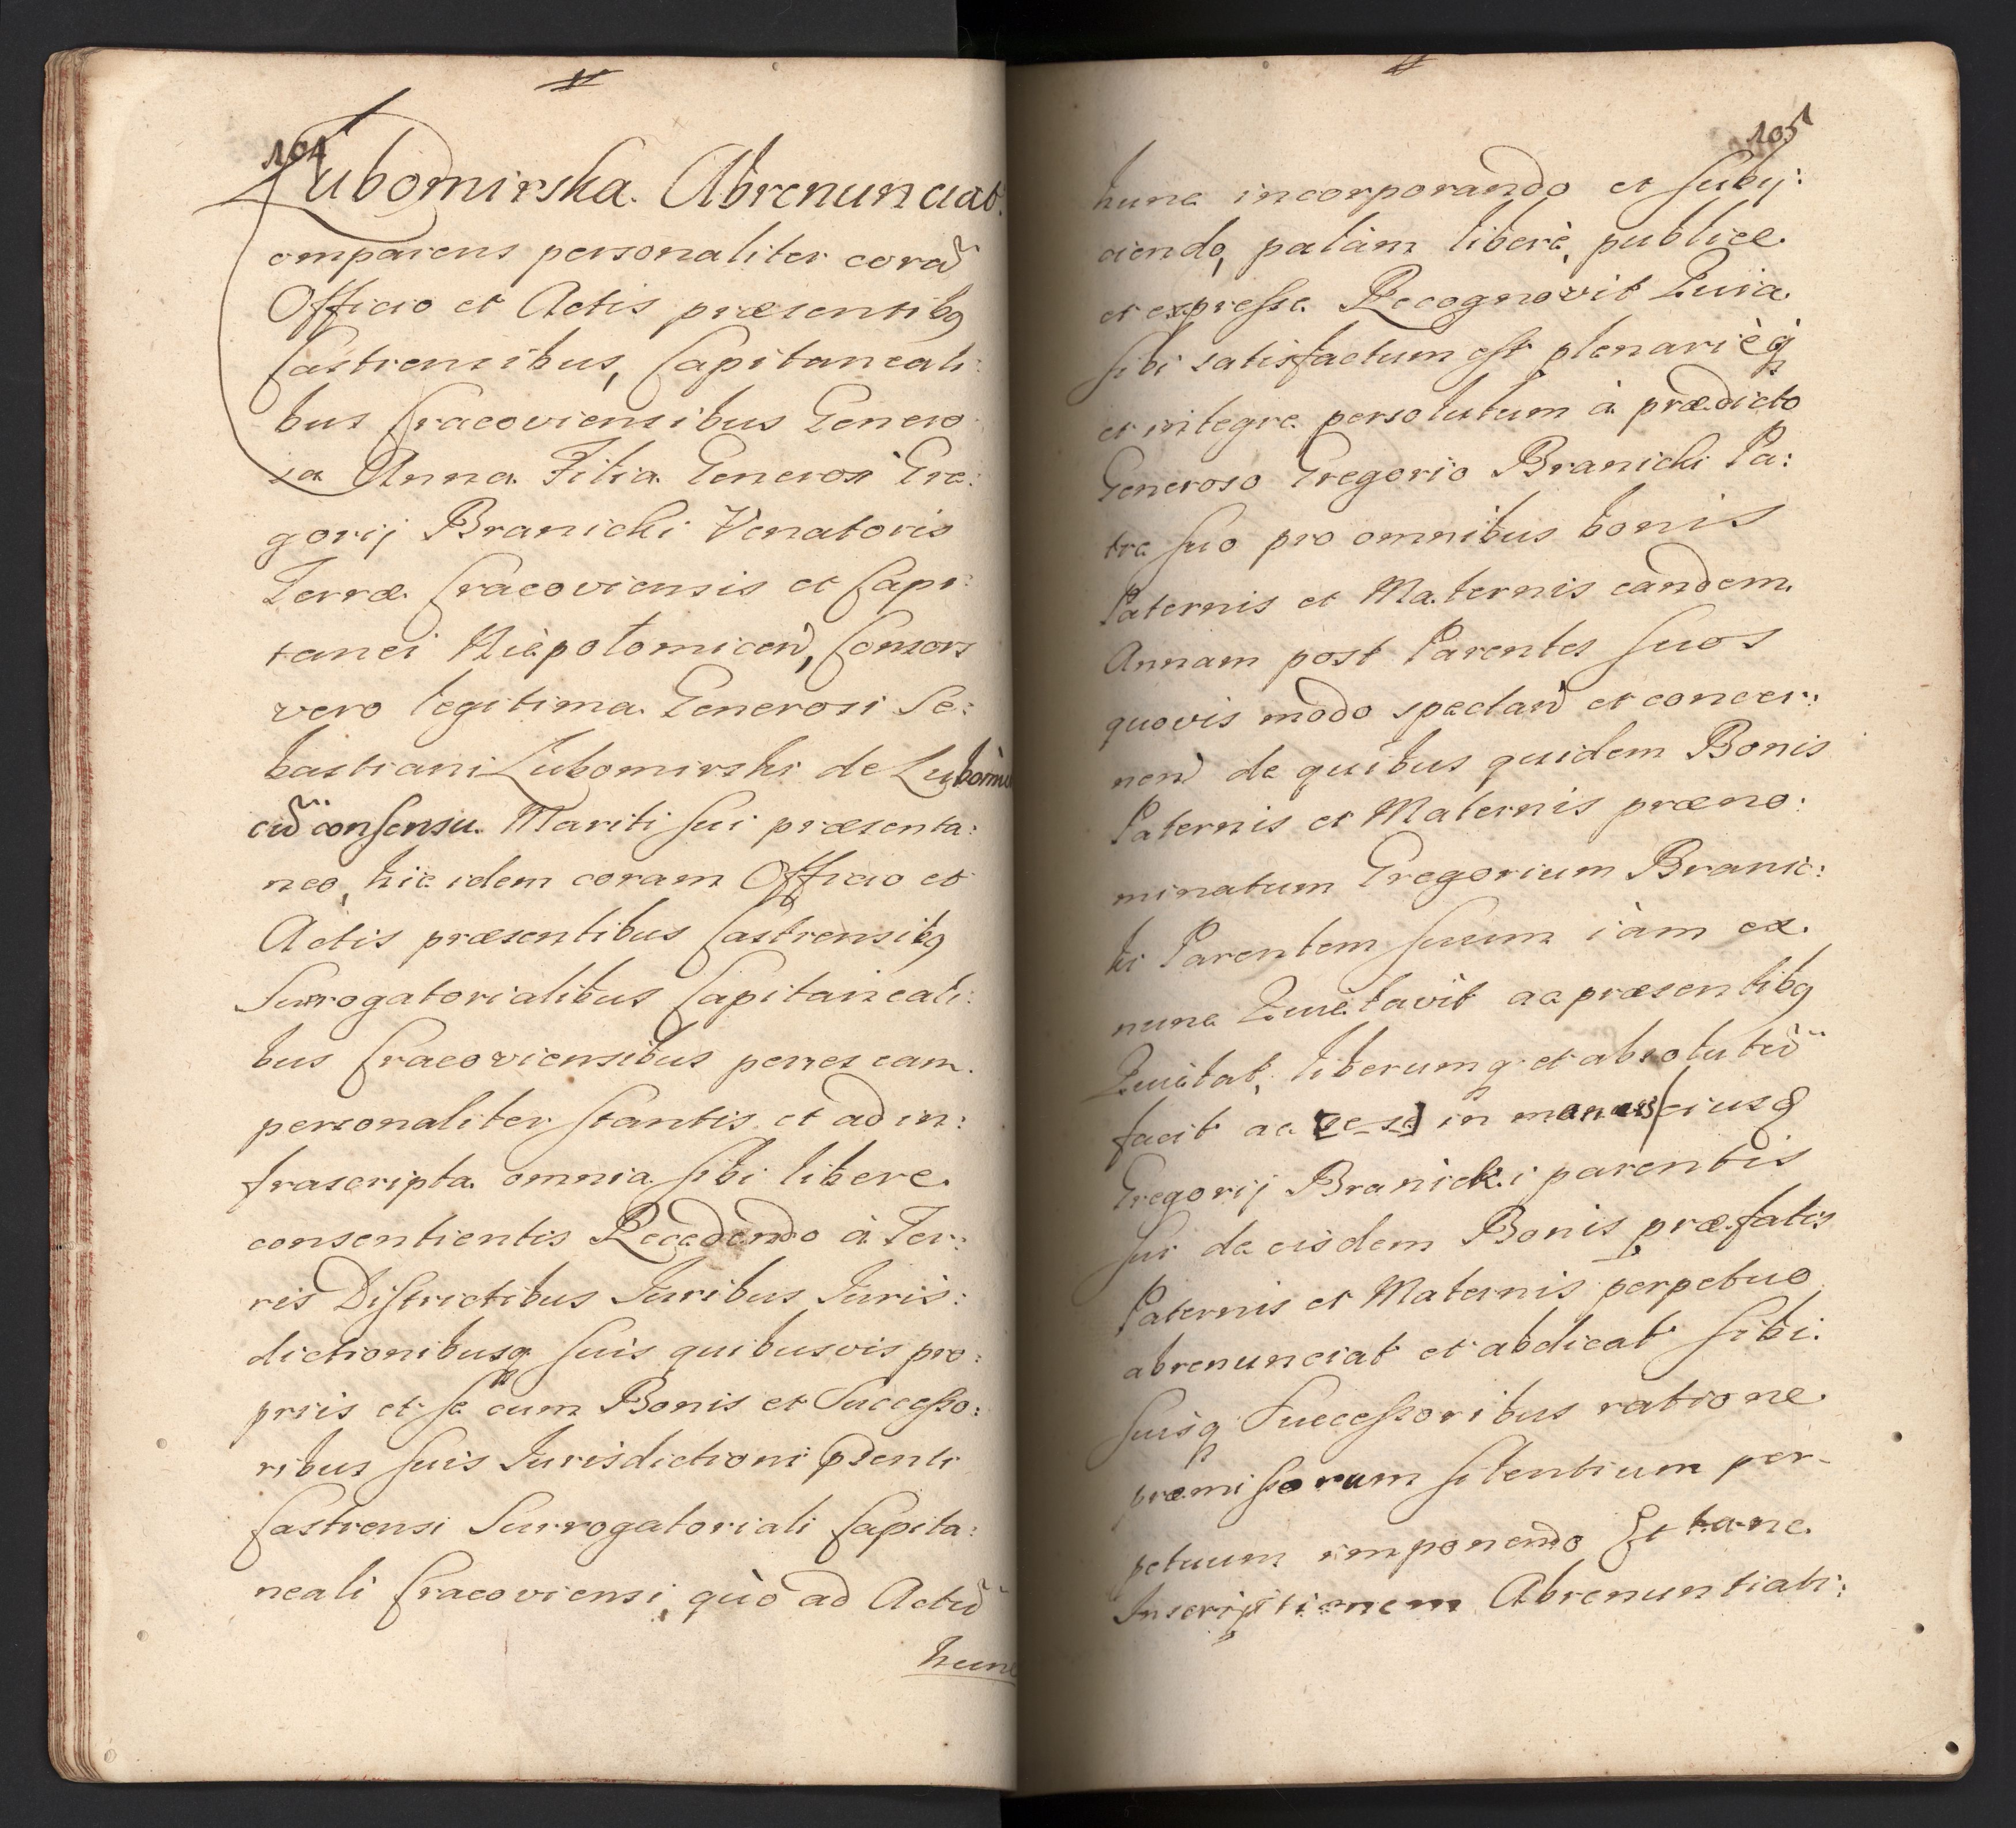 104
Lubomirska Abrenunciat.
Comparens personaliter corã
Officio et Actis præsentibq
Castrensibus, Capitaneali:
bus Cracoviensibus Genero
sa Anna Filia Generosi Gre:
gorij Branicki Venatoris
Terræ Cracoviensis et Capi
tanei Niepolomicen, Consors
vero legitima Generosi Se:
bastiani Lubomirski de Lubomi
cũ consensu Mariti sui præsenta:
neo, hic idem coram Officio et
Actis præsentibus Castrensibq
Surrogatorialibus Capitaneali:
bus Cracoviensibus penes eam
personaliter stantis et ad in:
frascripta omnia sibi libere
consentientis Recedendo à Ter:
ris Districtibus Juribus Juris:
dictionibusq suis quibusvis pro:
priis et se cum Bonis et Successo:
ribus suis Jurisdictioni pšenti
Castrensi Surrogatoriali Capita:
neali Cracoviensi quò ad Actũ
hunc
105
hunc incorporando et subij:
ciendo, palàm liberè, publice
et expresse Recognovit Quia
sibi satisfactum est plenarièq
et integre persolutum à prædicto
Generoso Gregorio Branicki Pa:
tre suo pro omnibus bonis
Paternis et Maternis eandem
Annam post Parentes suos
quovis modo spectan et concer:
nen de quibus quidem Bonis
Paternis et Maternis præno:
minatum Gregorium Branic:
ki Parentem suum iàm ex
nunc Quietavit ac præsentibq
Quietat, liberumq et absolutũ
facit ac [se se] in manus eiusd
Gregorij Branicki parentis
sui de eisdem Bonis præfatis
Paternis et Maternis perpetuo
abrenunciat et abdicat sibi
suisq Successoribus ratione
præmissorum silentium per-
petuum imponendo Et hanc
Inscriptionem Abrenuntiati: